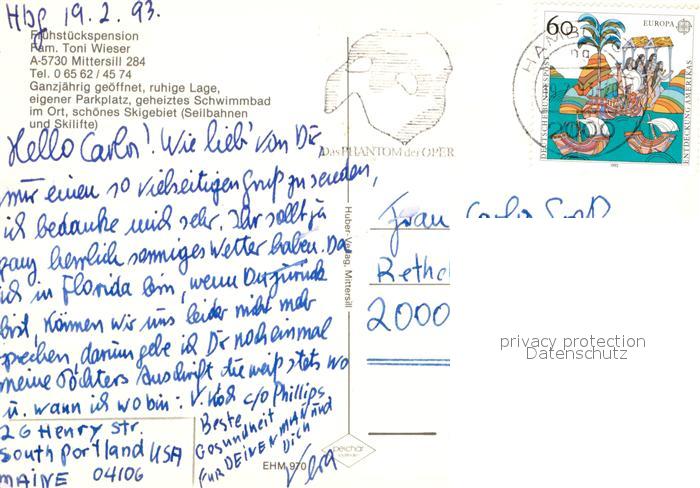 Hbg 19.2.93.
Frühstückspension
Fam. Toni Wieser
A-5730 Mittersill 284
Tel. 0 65 62 / 45 74
Ganzjährig geöffnet, ruhige Lage,
eigener Parkplatz, geheiztes Schwimmbad
im Ort, schönes Skigebiet (Seilbahnen
und Skilifte)
Hello Carlo! Wie lieb von Dir,
mir einen so vielseitigen Gruß zu senden,
ich bedanke mich sehr. Ihr sollt ja
ganz herrlich sonniges Wetter haben. Da
ich in Florida bin, wenn Du zurück
bist, können wir uns leider nicht mehr
sprechen, darum gebe ich Dir noch einmal
meine Töchters Anschrift die weiß stets wo
u. wann ich wo bin: V. Koch c/o Phillips
26 Henry Str.
South Portland USA
MAINE 04106
Beste
Gesundheit
für DEINEN MANN und
Dich
Vera
EHM 970
Huber-Verlag, Mittersill
Das PHANTOM der OPER
HAMB
60
EUROPA
DEUTSCHE BUNDESPOST
ENTDECKUNG AMERIKAS
1992
2000
Frau
Rethel
2000
privacy protection
Datenschutz